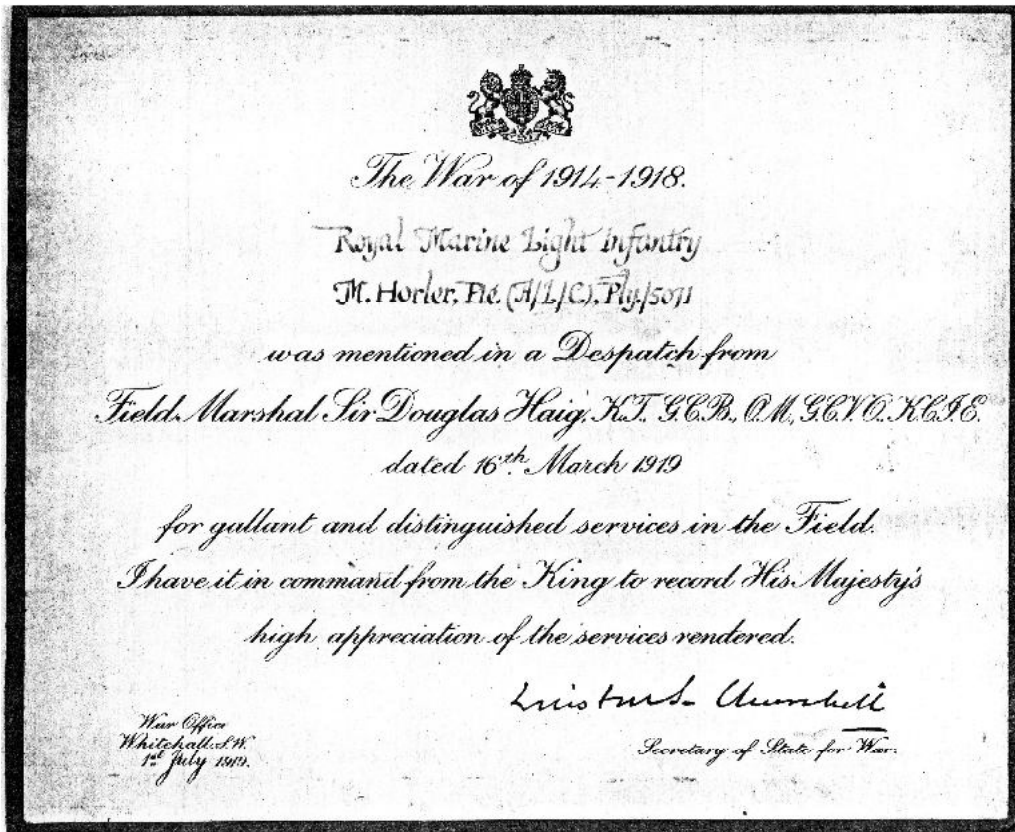 The War of 1914-1918.
Royal Marine Light Infantry
M. Horler, Pte. (A/L/C), Ply/5071
was mentioned in a Despatch from
Field Marshal Sir Douglas Haig, K.T. G.C.B., O.M., G.C.V.O., K.C.I.E.
dated 16th March 1919
for gallant and distinguished services in the Field.
I have it in command from the King to record His Majesty's
high appreciation of the services rendered.
Winston S. Churchill
War Office
Whitehall. S.W.
1st July 1919.
Secretary of State for War.